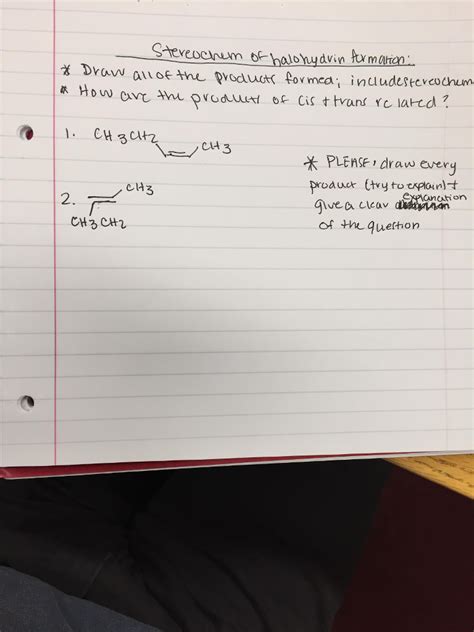 Stereochem of halohydrin formation:
* Draw all of the products formed; include stereochem
* How are the products of cis + trans related?
1. CH3CH2
CH3
* PLEASE, draw every
product (try to explain) +
give a clear explanation
of the question
2.
CH3
CH3CH2